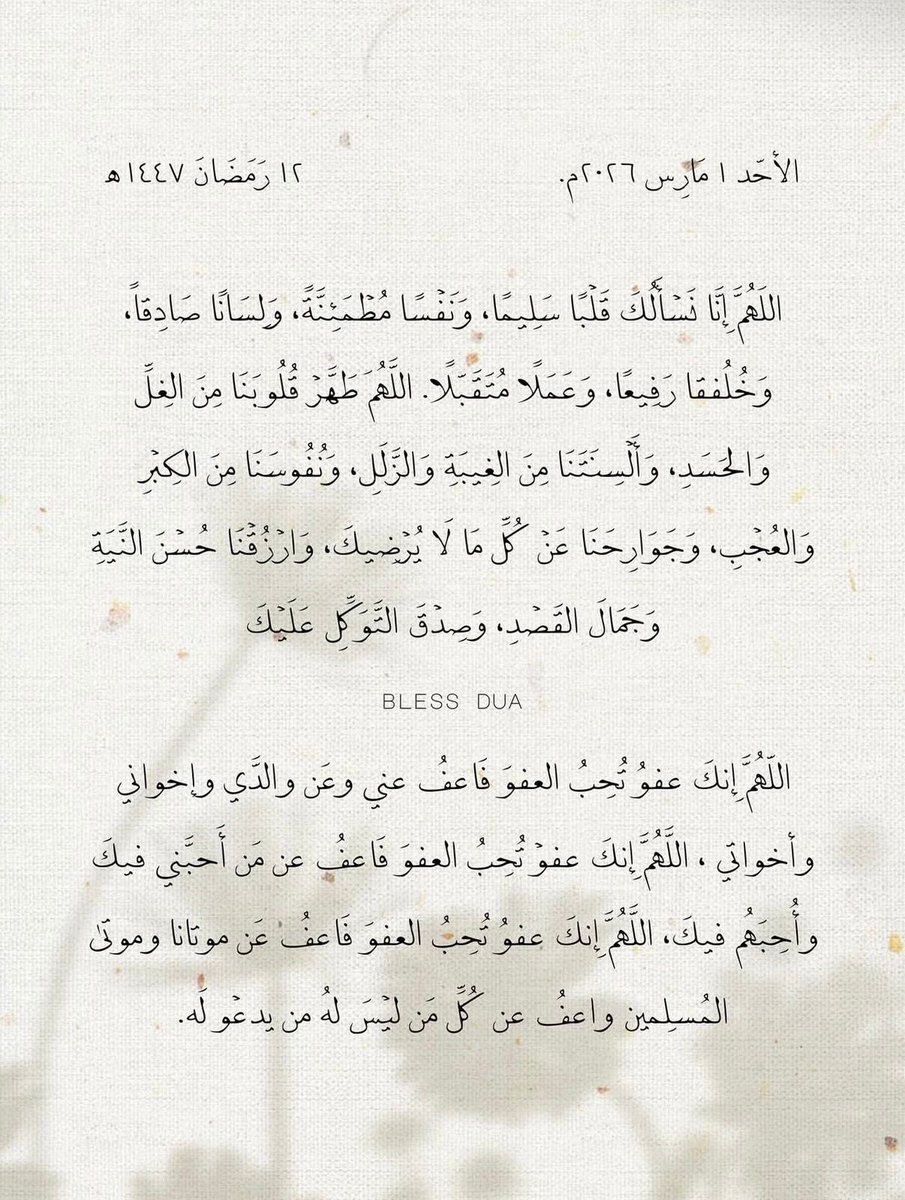 الأحّد ١ مَارِس ٢٠٢٦م. ١٢ رَمَضَانَ ١٤٤٧ه
اللَهُمَّ إِنَّا نَسْأَلُكَ قَلْبًا سَلِيمًا، وَنَفْسًا مُطْمَئِنَّةً، وَلِسَانًا صَادِقاً،
وَخُلُفقا رَفِيعًا، وَعَمَلًا مُتَقَبَّلًا. اللَّهُمَ طَهَّرْ قُلُوبَنَا مِنَ الغِلِّ
وَالحَسَدِ، وَأَلْسِنَتَنَا مِنَ الغِيبَةِ وَالزَّلَلِ، وَنُفُوسَنَا مِنَ الكِبْرِ
وَالعُجْبِ، وَجَوَارِحَنَا عَنْ كُلِّ مَا لَا يُرْضِيكَ، وَارْزُقْنَا حُسْنَ النَّيَةِ
وَجَمَالَ القَصْدِ، وَصِدْقَ التَّوَكِّلِ عَلَيْكَ
BLESS DUA
اللَّهُمَّ إِنكَ عفوُ تُحِبُ العفوَ فَاعفُ عني وعَن والدَّي وإخواني
وأخواتي ، اللَّهُمَّ إِنكَ عفوْ تُحِبُ العفوَ فَاعفُ عن مَن أَحبَّني فيكَ
وأُحِبَهُم فيكَ، اللَّهُمَّ إِنكَ عفوُ تُحِبُ العفوَ فَاعفُ عَن موتانا وموتىٰ
المُسلِمين واعفُ عن كُلِّ مَن ليْسَ لهُ من يدعوْ لَه.